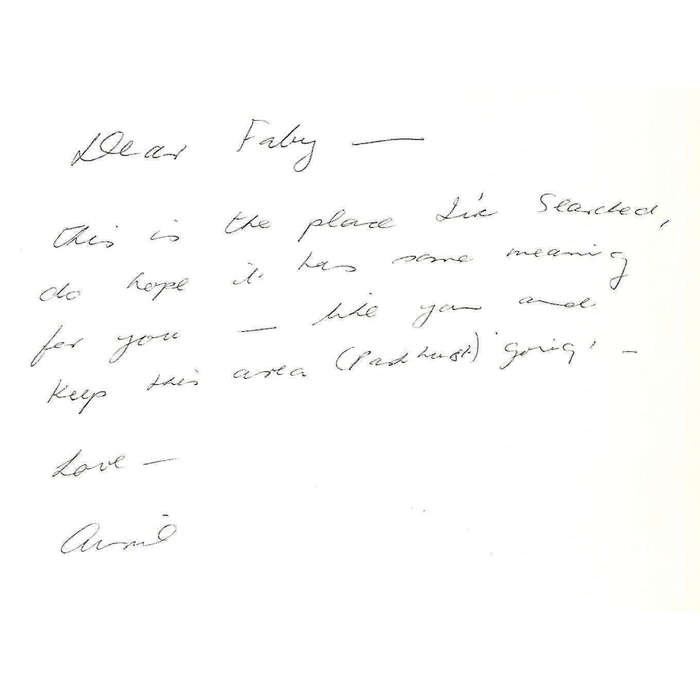 Dear Faby —
this is the place I've searched,
do hope it has some meaning
for you — like you and
keep this area (Parkhurst) 'going' —
Love —